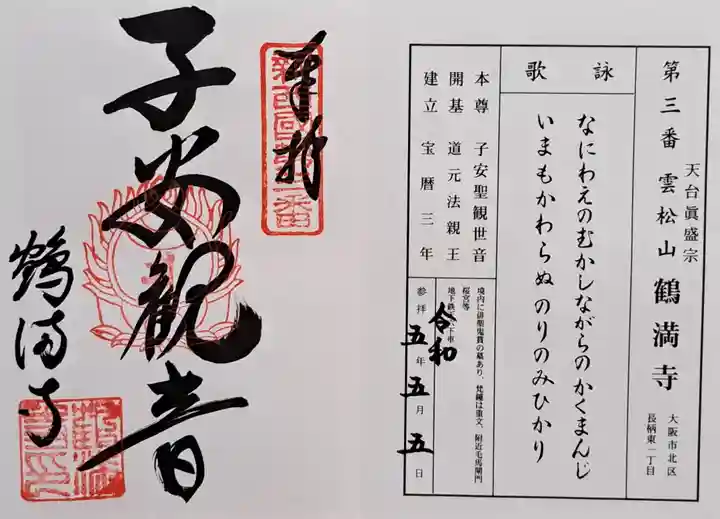 奉拝
新西国第三番
子安観音
鶴満寺
第三番 雲松山 鶴満寺
天台眞盛宗
大阪市北区
長柄東一丁目
詠歌
なにわえのむかしながらのかくまんじ
いまもかわらぬのりのみひかり
本尊 子安聖観世音
開基 道元法親王
建立 宝暦三年
境内に俳傑鬼貫の墓あり、梵鐘は重文、附近毛馬閘門
桜宮等
地下鉄 下車
参拝 令和五年五月五日